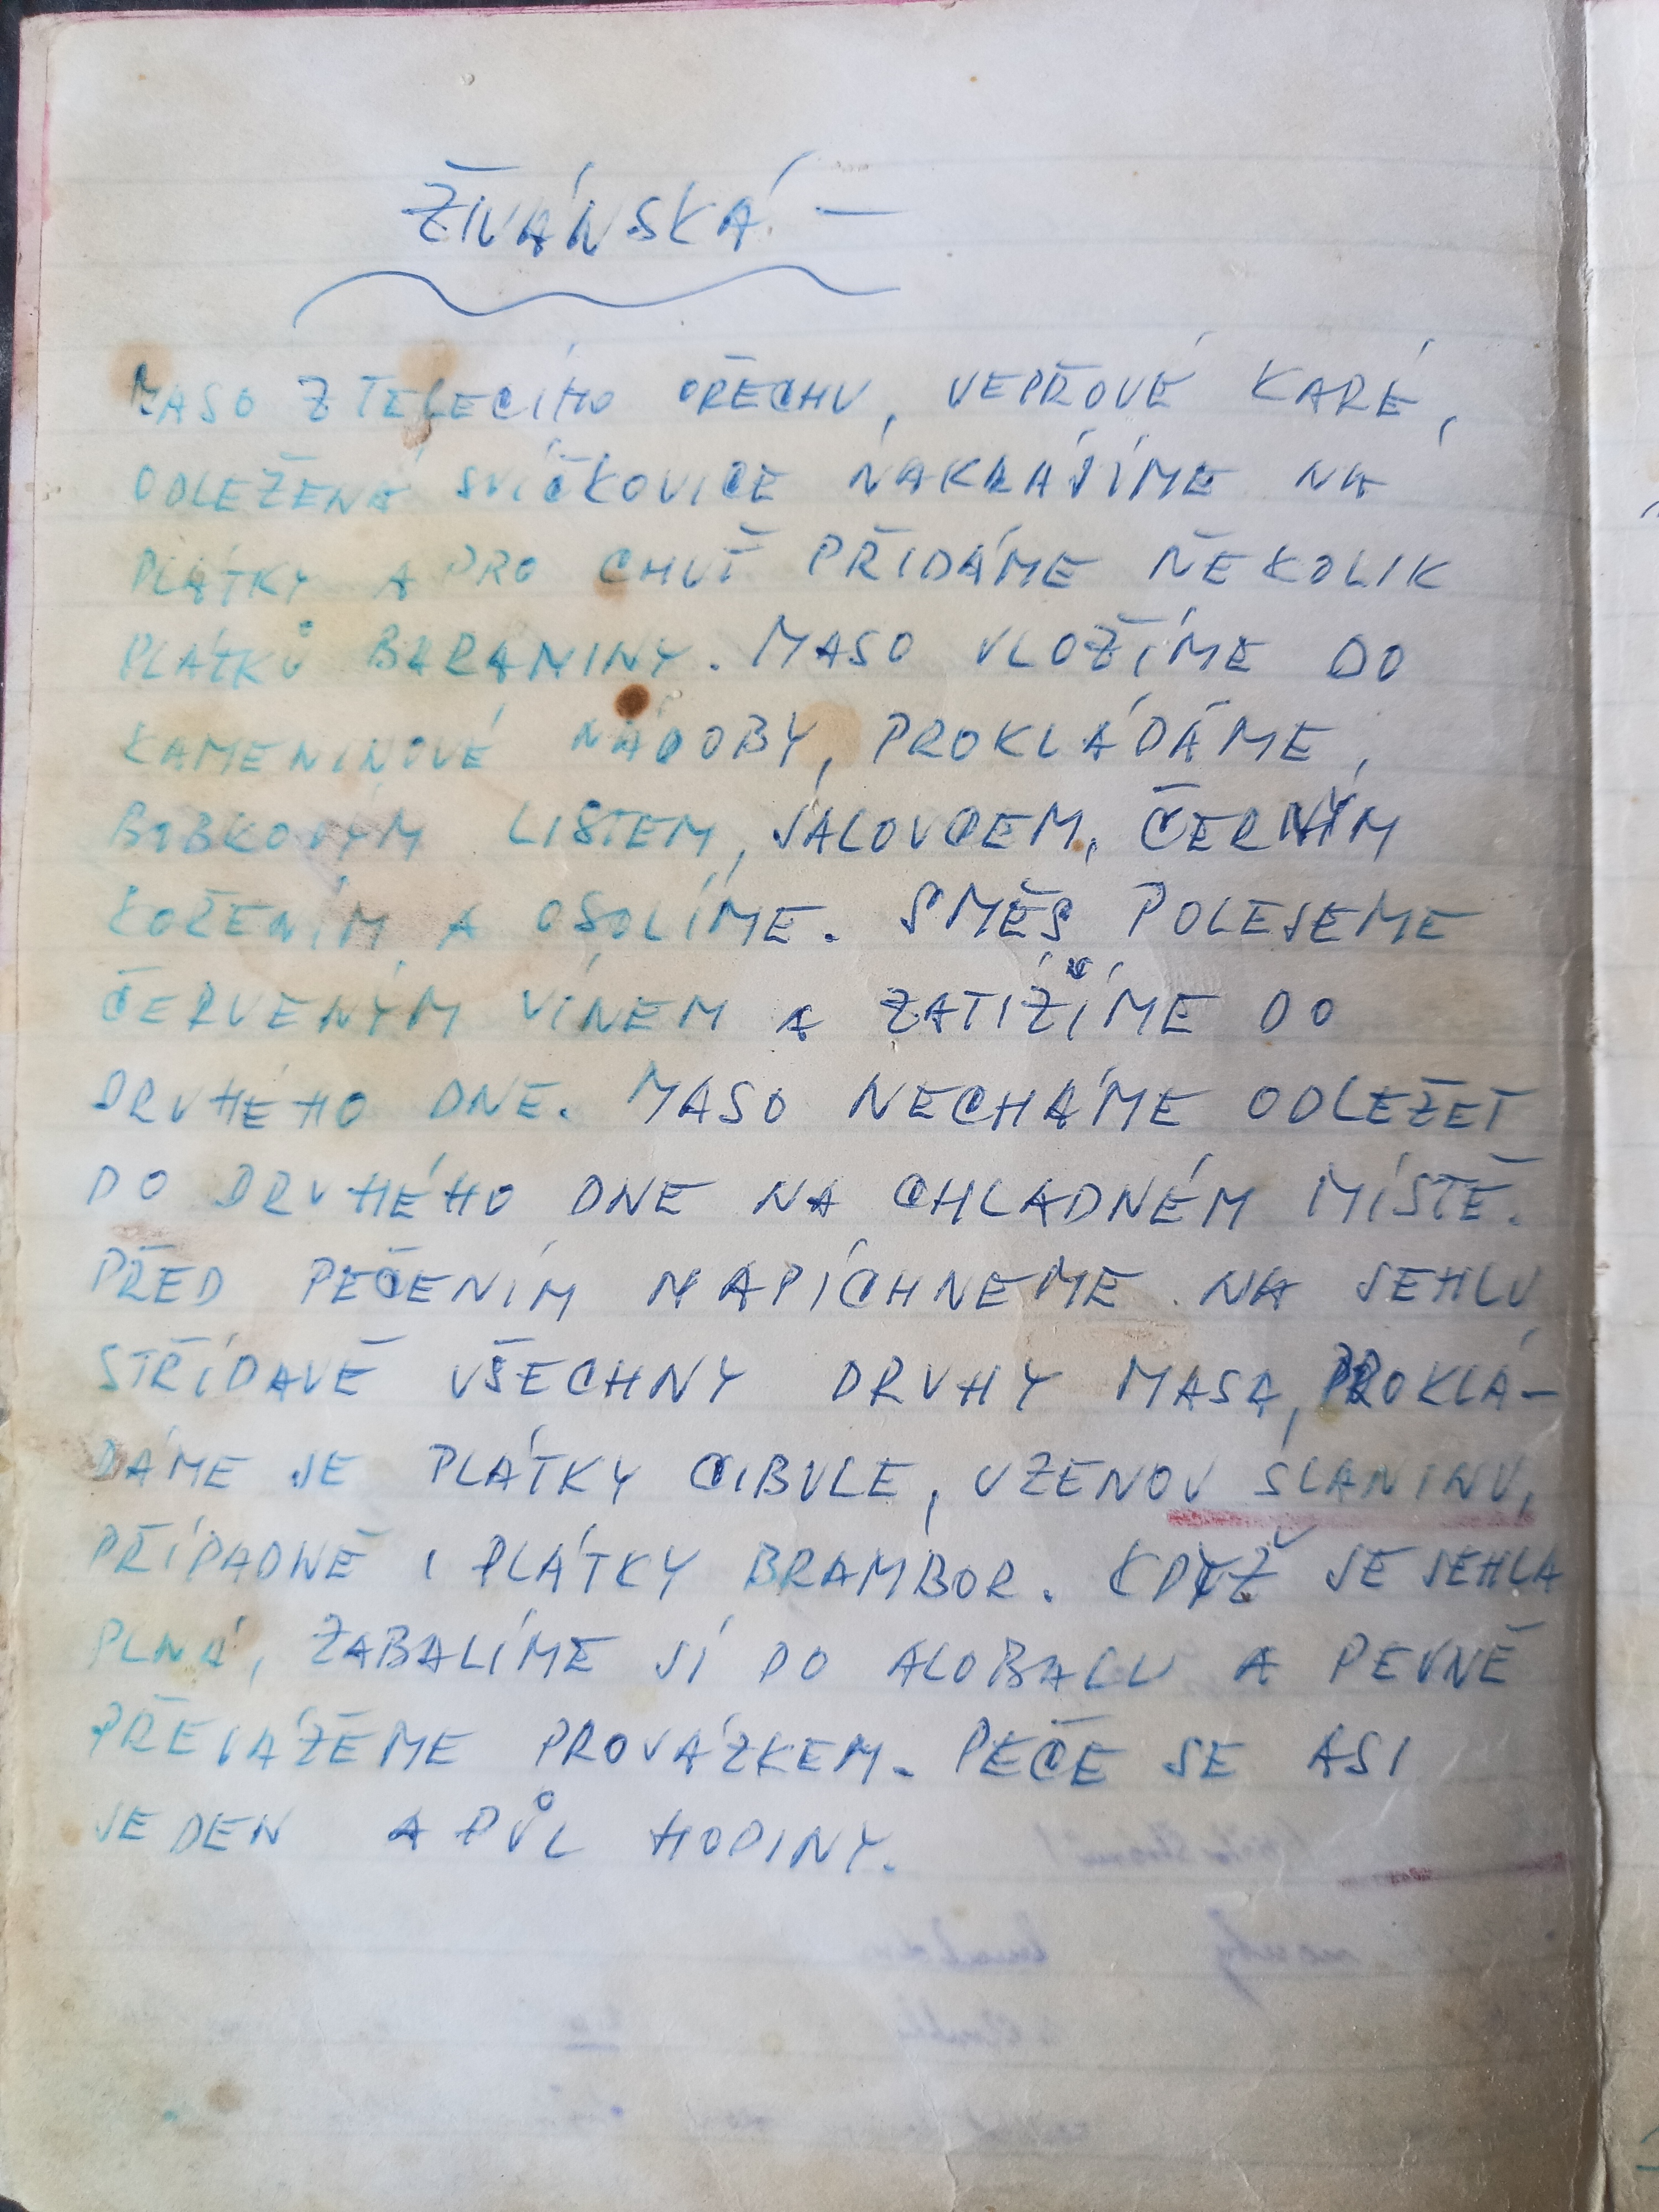 ŽIVÁNSKÁ –
MASO Z TELECÍHO OŘECHU, VEPŘOVÉ KARÉ,
ODLEŽENÁ SVÍČKOVICE NAKRÁJÍME NA
PLÁTKY A PRO CHUŤ PŘIDÁME NĚKOLIK
PLÁTKŮ BARANINY. MASO VLOŽÍME DO
KAMENINOVÉ NÁDOBY, PROKLÁDÁME,
BOBKOVÝM LISTEM, JALOVCEM, ČERNÝM
KOŘENÍM A OSOLÍME. SMĚS POLEJEME
ČERVENÝM VÍNEM A ZATÍŽÍME DO
DRUHÉHO DNE. MASO NECHÁME ODLEŽET
DO DRUHÉHO DNE NA CHLADNÉM MÍSTĚ.
PŘED PEČENÍM NAPÍCHNEME NA JEHLU
STŘÍDAVĚ VŠECHNY DRUHY MASA, PROKLÁ-
DÁME JE PLÁTKY CIBULE, UZENOU SLANINU,
PŘÍPADNĚ I PLÁTKY BRAMBOR. KDYŽ JE JEHLA
PLNÁ, ZABALÍME JÍ DO ALOBALU A PEVNĚ
PŘEVÁŽEME PROVÁZKEM. PEČE SE ASI
JEDEN A PŮL HODINY.